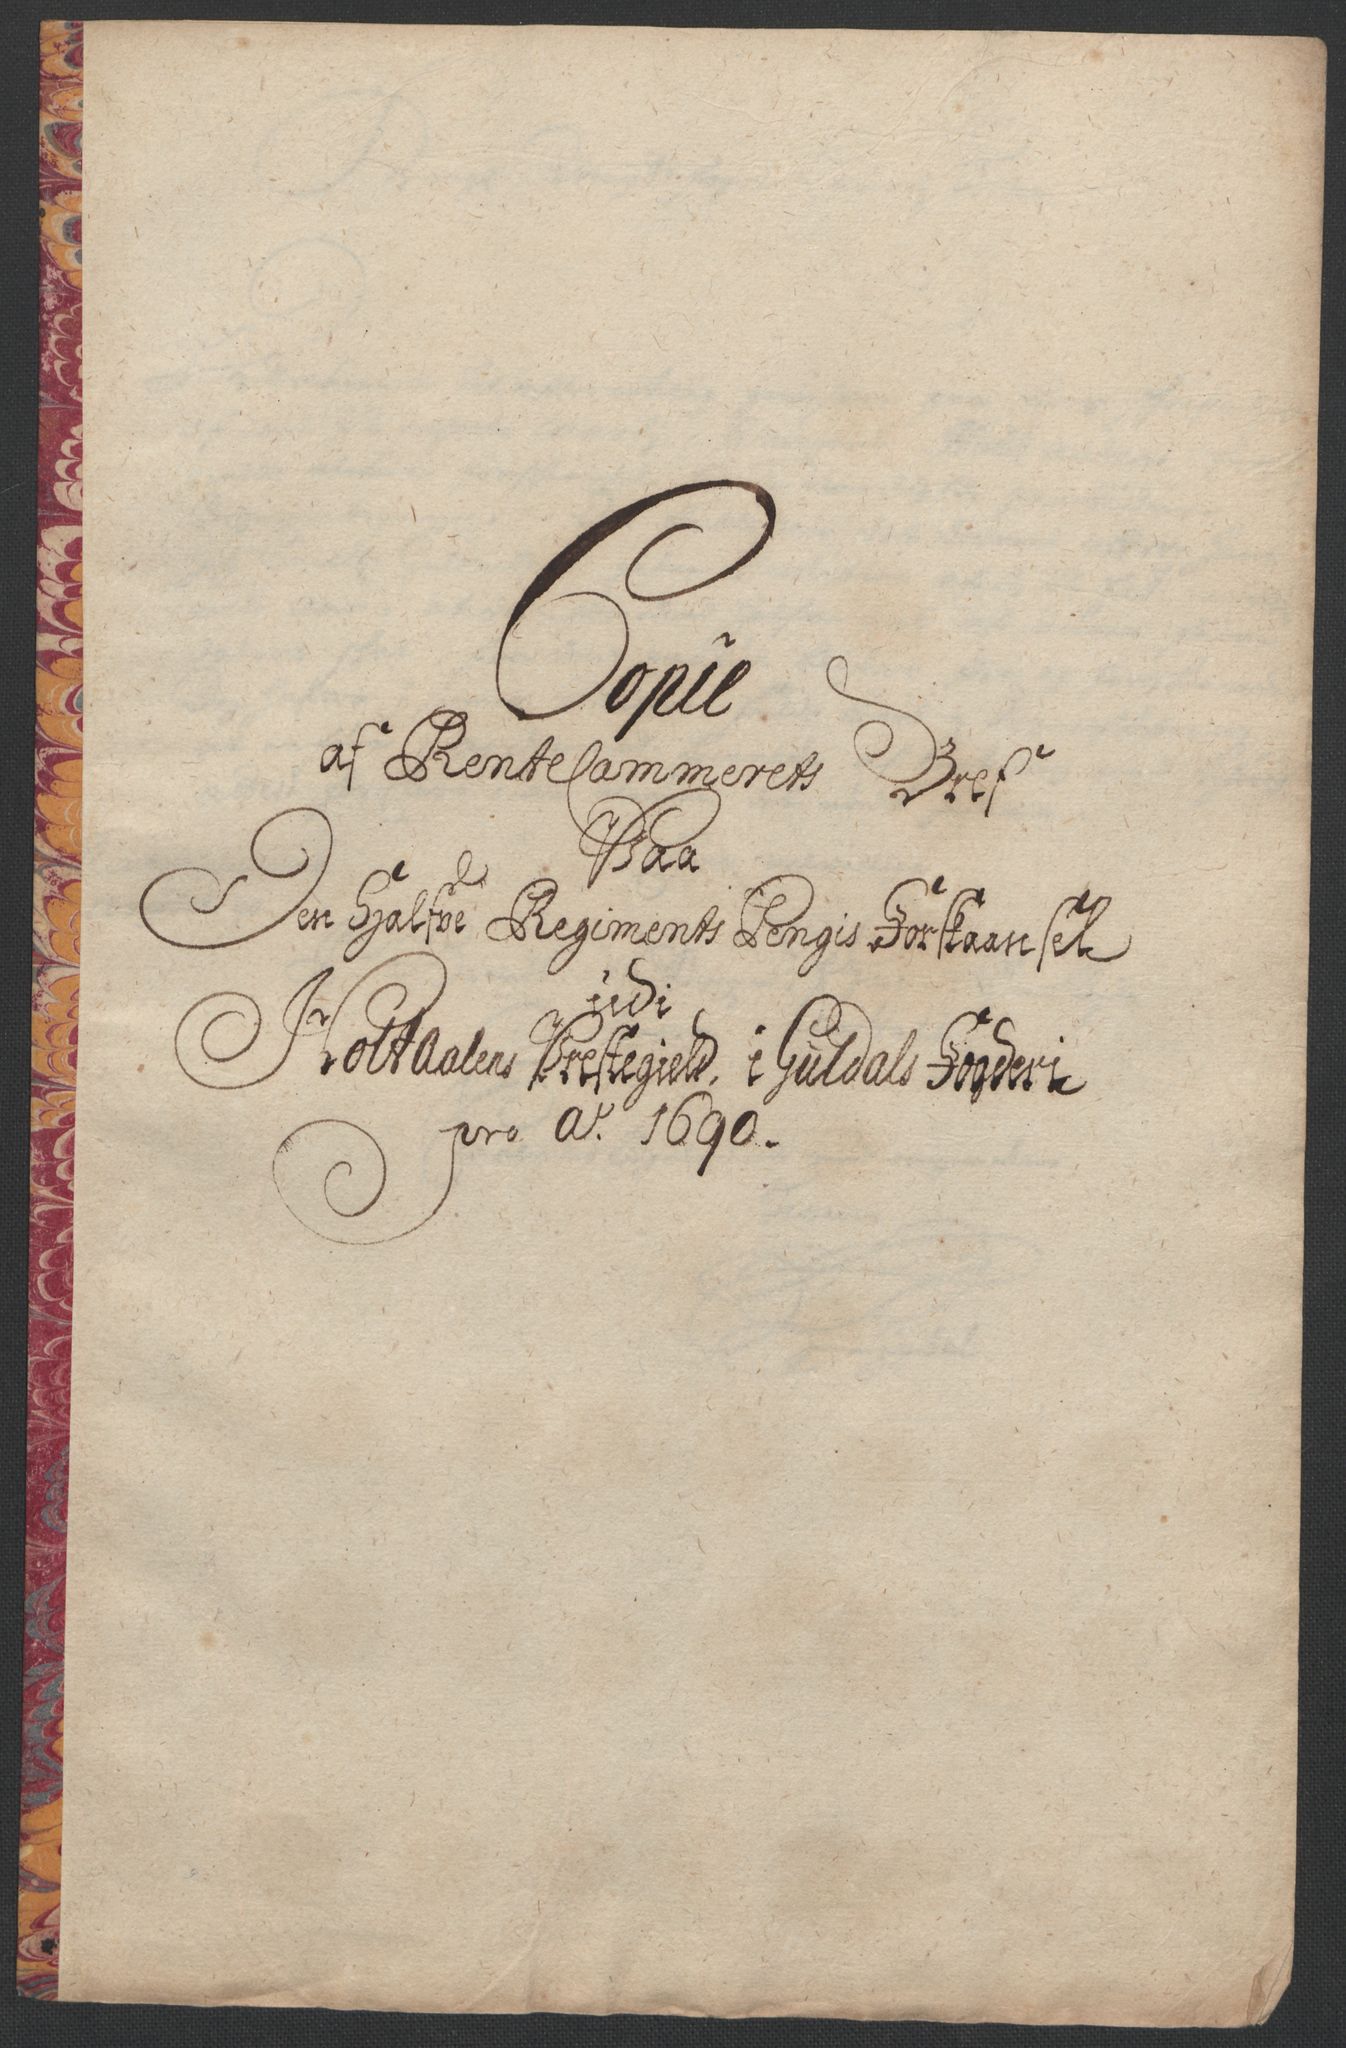 Copie
af RenteCammerets Bref
Paa
den hjalfve Regiments Pengis Forskaansel
udi
Holtaalens Prestegield, i Guldals Fogderi
pro Ao. 1690.